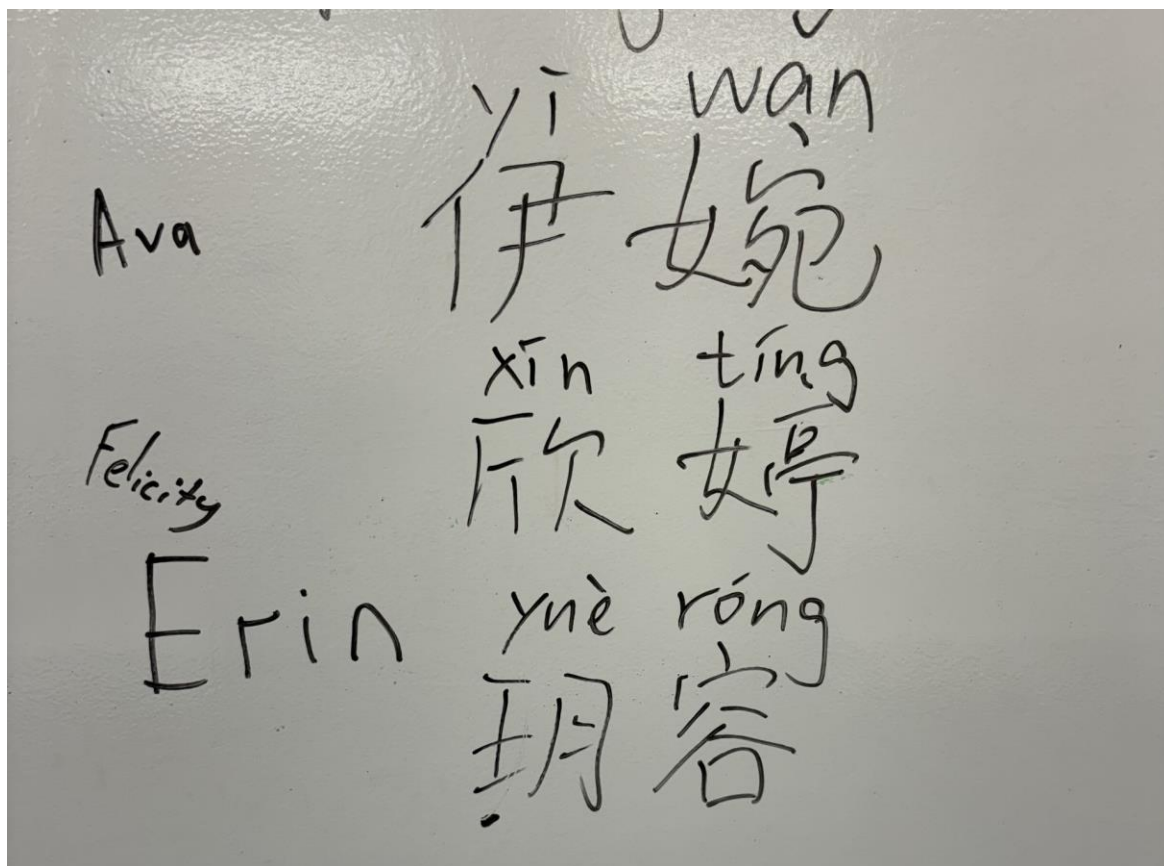 yī wǎn
Ava 伊 婉
xīn tíng
Felicity 欣 婷
Erin yuè róng
玥 容